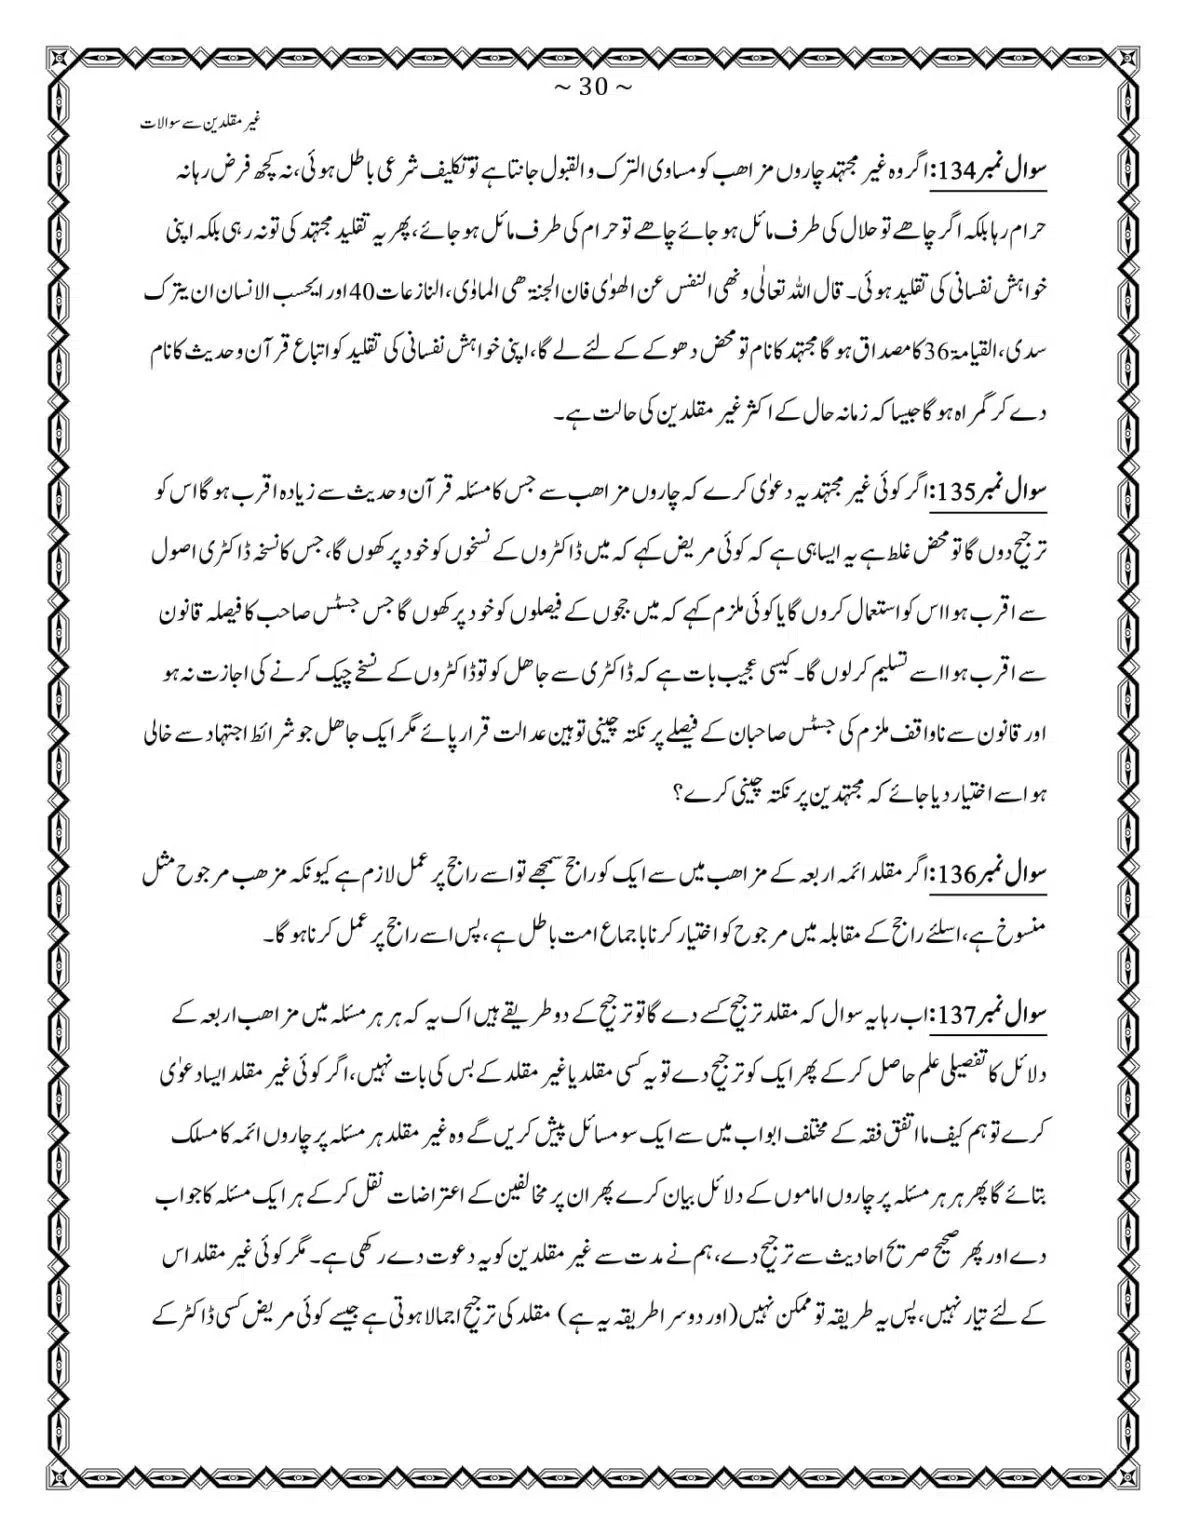 ~ 30 ~
غیر مقلدین سے سوالات
سوال نمبر134:اگر وہ غیر مجتہد چاروں مزاھب کو مساوی الترک والقبول جانتا ہے تو تکلیف شرعی باطل ہوئی، نہ کچھ فرض رہا نہ
حرام رہا بلکہ اگر چاھے تو حلال کی طرف مائل ہو جائے چاھے تو حرام کی طرف مائل ہو جائے، پھر یہ تقلید مجتہد کی تو نہ رہی بلکہ اپنی
خواہش نفسانی کی تقلید ہوئی۔ قال اللہ تعالٰی ونھی النفس عن الھوٰی فان الجنۃ ھی الماوٰی، النازعات40 اور ایحسب الانسان ان یترک
سدی، القیامۃ36 کا مصداق ہو گا مجتہد کا نام تو محض دھوکے کے لئے لے گا، اپنی خواہش نفسانی کی تقلید کو اتباع قرآن وحدیث کا نام
دے کر گمراہ ہو گا جیسا کہ زمانہ حال کے اکثر غیر مقلدین کی حالت ہے۔
سوال نمبر135:اگر کوئی غیر مجتہد یہ دعوٰی کرے کہ چاروں مزاھب سے جس کا مسئلہ قرآن و حدیث سے زیادہ اقرب ہو گا اس کو
ترجیح دوں گا تو محض غلط ہے یہ ایسا ہی ہے کہ کوئی مریض کہے کہ میں ڈاکٹروں کے نسخوں کو خود پرکھوں گا، جس کا نسخہ ڈاکٹری اصول
سے اقرب ہوا اس کو استعمال کروں گا یا کوئی ملزم کہے کہ میں ججوں کے فیصلوں کو خود پرکھوں گا جس جسٹس صاحب کا فیصلہ قانون
سے اقرب ہوا اسے تسلیم کرلوں گا۔ کیسی عجیب بات ہے کہ ڈاکٹری سے جاھل کو تو ڈاکٹروں کے نسخے چیک کرنے کی اجازت نہ ہو
اور قانون سے ناواقف ملزم کی جسٹس صاحبان کے فیصلے پر نکتہ چینی توہین عدالت قرار پائے مگر ایک جاھل جو شرائط اجتہاد سے خالی
ہو اسے اختیار دیا جائے کہ مجتہدین پر نکتہ چینی کرے؟
سوال نمبر136:اگر مقلد ائمہ اربعہ کے مزاھب میں سے ایک کو راجح سمجھے تو اسے راجح پر عمل لازم ہے کیونکہ مزھب مرجوح مثل
منسوخ ہے، اسلئے راجح کے مقابلہ میں مرجوح کو اختیار کرنا باجماع امت باطل ہے، پس اسے راجح پر عمل کرنا ہو گا۔
سوال نمبر137:اب رہا یہ سوال کہ مقلد ترجیح کسے دے گا تو ترجیح کے دو طریقے ہیں اک یہ کہ ہر ہر مسئلہ میں مزاھب اربعہ کے
دلائل کا تفصیلی علم حاصل کرکے پھر ایک کو ترجیح دے تو یہ کسی مقلد یا غیر مقلد کے بس کی بات نہیں، اگر کوئی غیر مقلد ایسا دعوٰی
کرے تو ہم کیف ما اتفق فقہ کے مختلف ابواب میں سے ایک سو مسائل پیش کریں گے وہ غیر مقلد ہر مسئلہ پر چاروں ائمہ کا مسلک
بتائے گا پھر ہر ہر مسئلہ پر چاروں اماموں کے دلائل بیان کرے پھر ان پر مخالفین کے اعتراضات نقل کرکے ہر ایک مسئلہ کا جواب
دے اور پھر صحیح صریح احادیث سے ترجیح دے، ہم نے مدت سے غیر مقلدین کو یہ دعوت دے رکھی ہے۔ مگر کوئی غیر مقلد اس
کے لئے تیار نہیں، پس یہ طریقہ تو ممکن نہیں (اور دوسرا طریقہ یہ ہے) مقلد کی ترجیح اجمالا ہوتی ہے جیسے کوئی مریض کسی ڈاکٹر کے